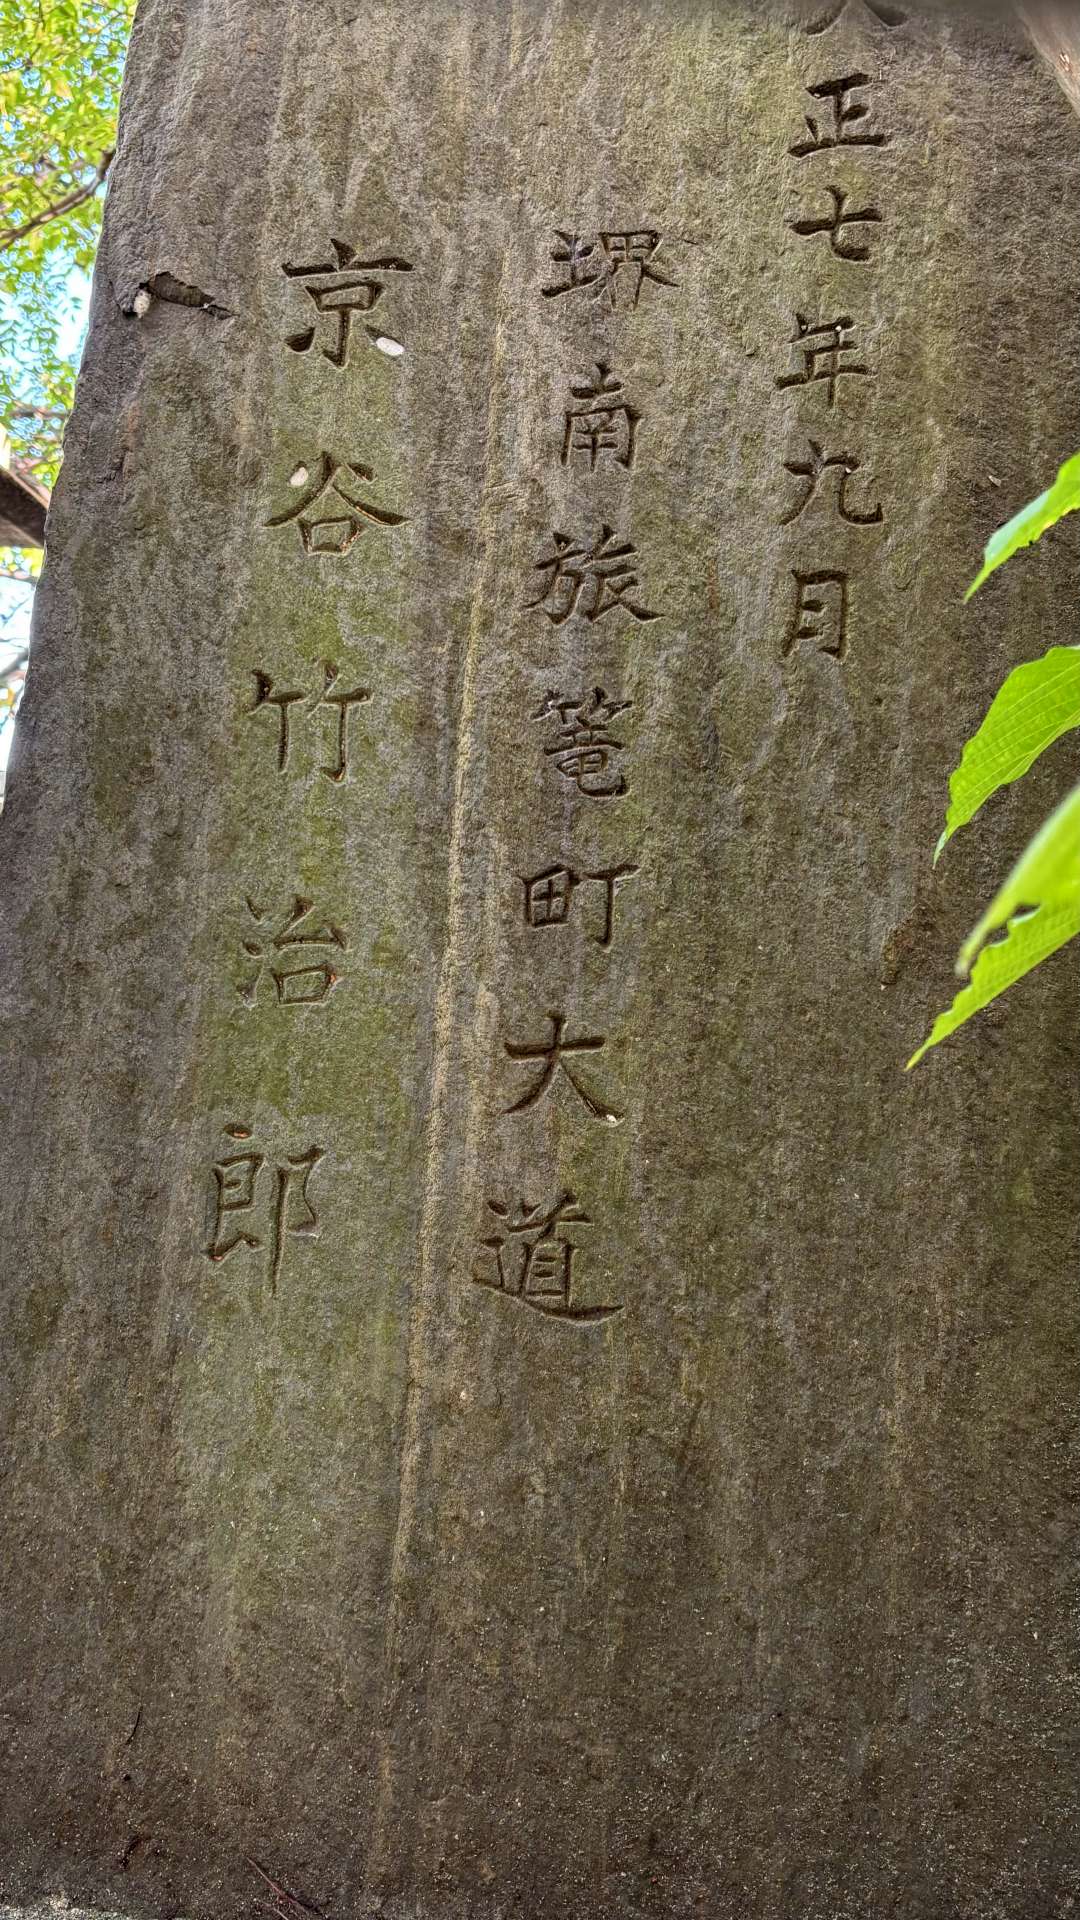 正七年九日
堺南旅篭町大道
京谷竹治郎